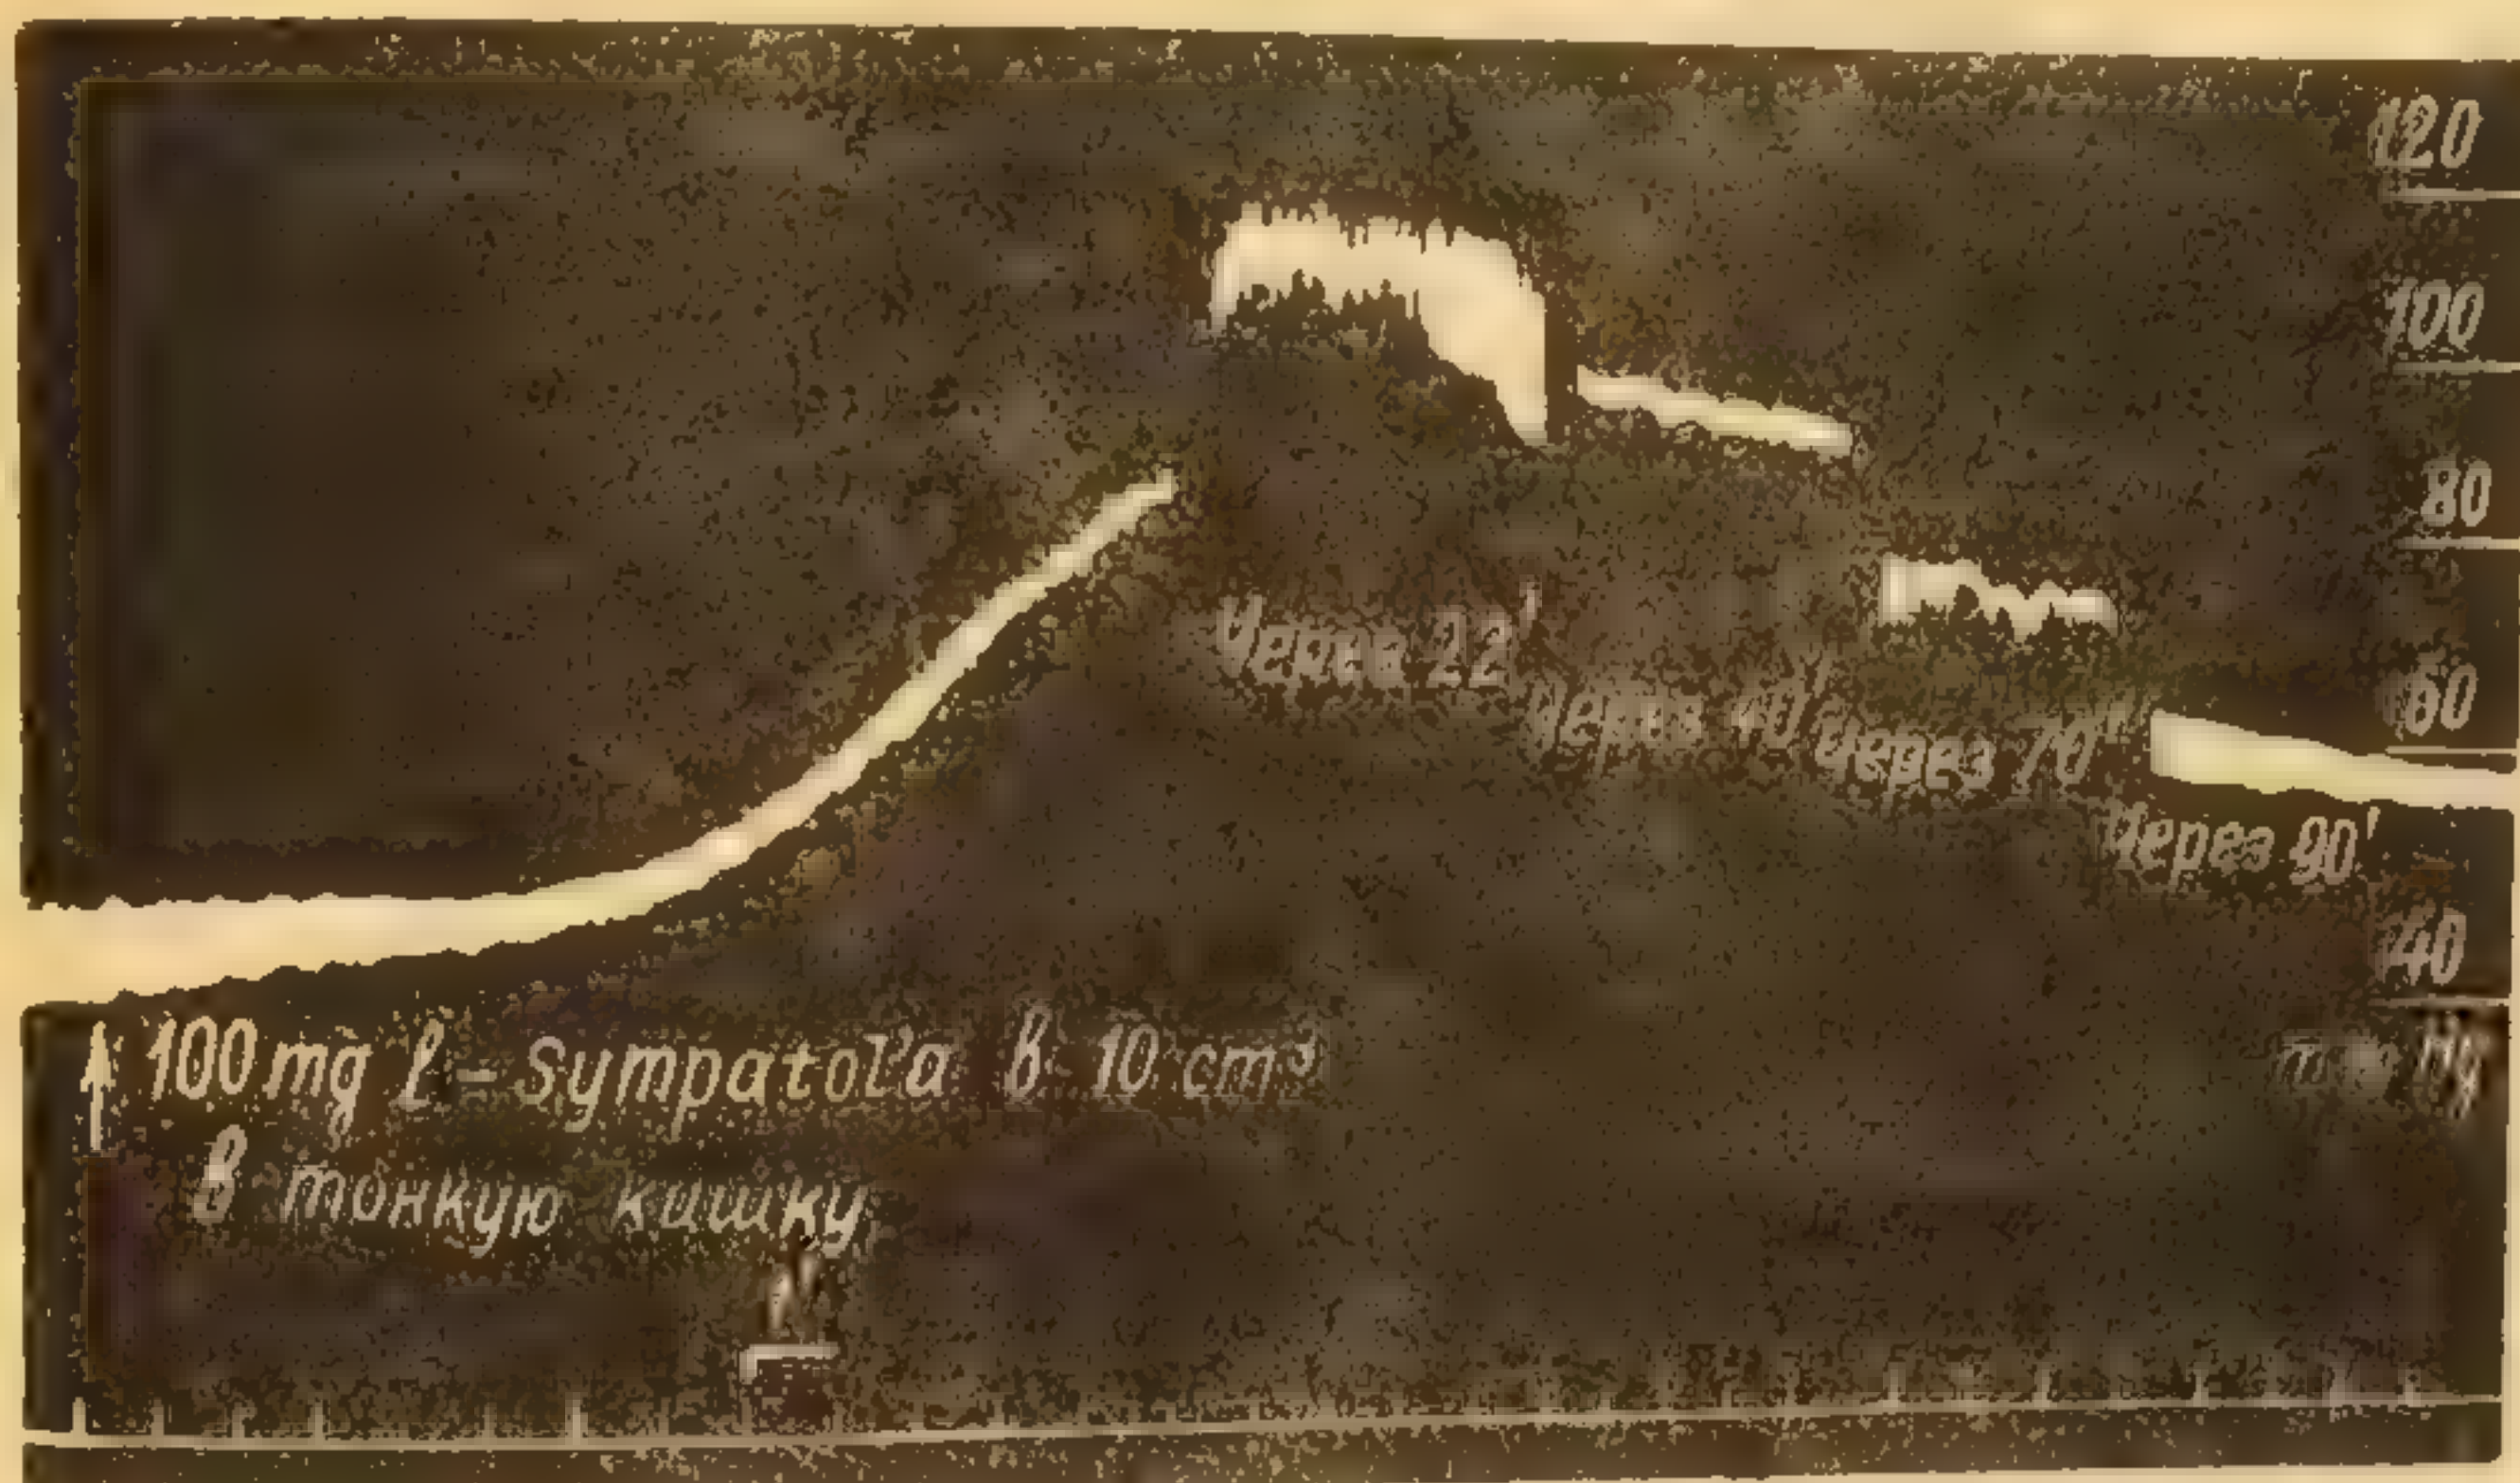 120
100
80
Через 22'
60
Через 40'
Через 70'
Через 90'
40
100 mg l-Sympatol'a в 10 cm³
Hg
в тонкую кишку
1'